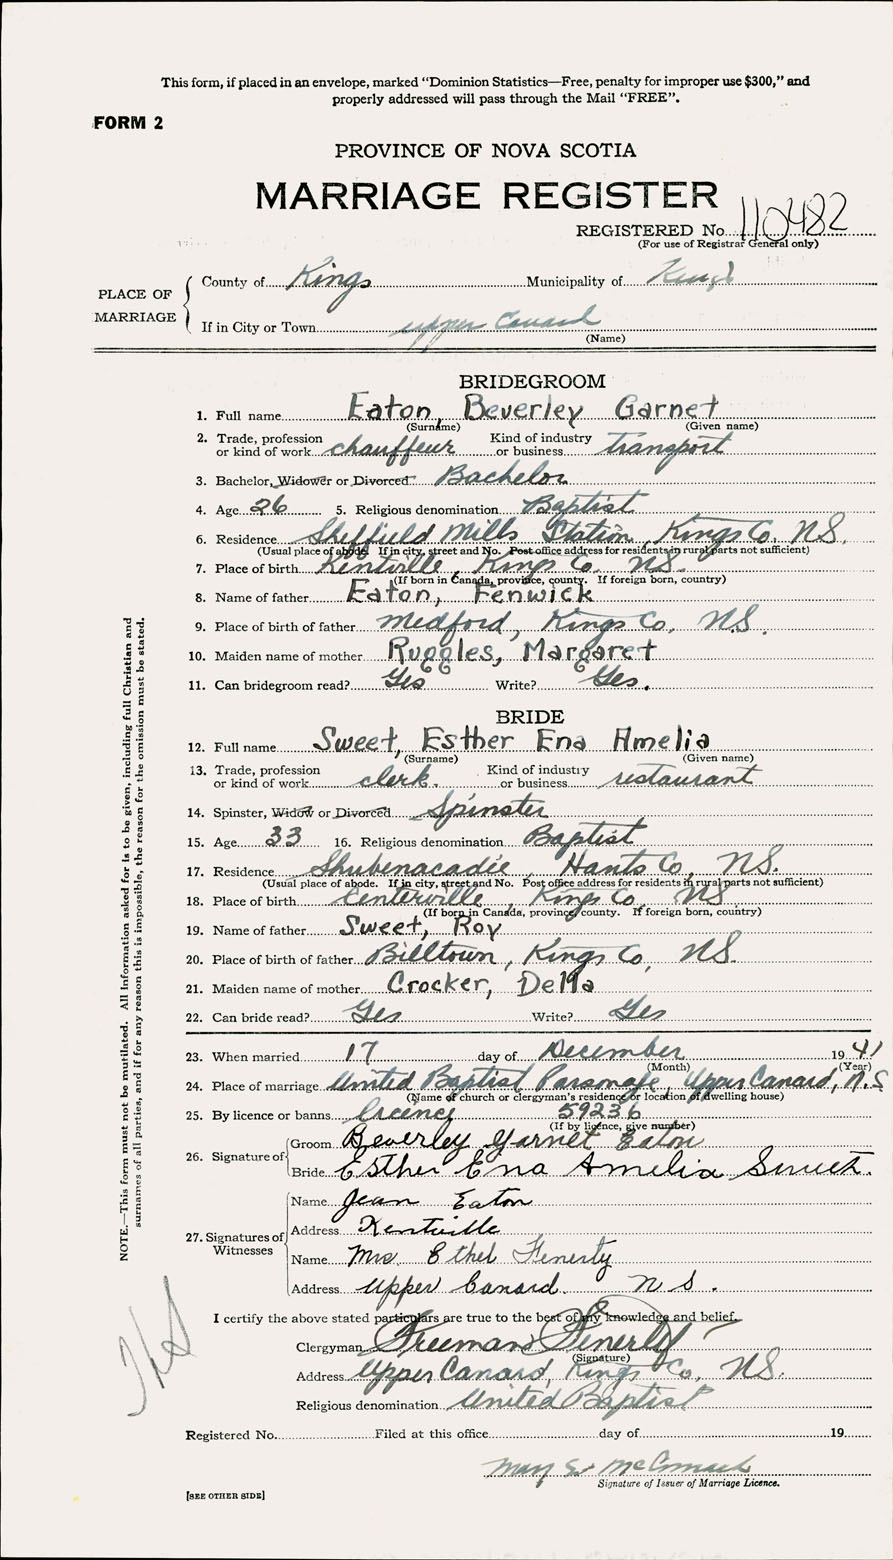 This form, if placed in an envelope, marked “Dominion Statistics—Free, penalty for improper use $300,” and
properly addressed will pass through the Mail “FREE”.
FORM 2
PROVINCE OF NOVA SCOTIA
MARRIAGE REGISTER
REGISTERED No. 110482
(For use of Registrar General only)
PLACE OF MARRIAGE
County of Kings Municipality of Kings
If in City or Town Upper Canard
(Name)
BRIDEGROOM
1. Full name Eaton, Beverley Garnet
(Surname) (Given name)
2. Trade, profession or kind of work chauffeur Kind of industry or business transport
3. Bachelor, Widower or Divorced Bachelor
4. Age 26 5. Religious denomination Baptist
6. Residence Sheffield Mills Station, Kings Co. N.S.
(Usual place of abode. If in city, street and No. Post office address for residents in rural parts not sufficient)
7. Place of birth Kentville, Kings Co. N.S.
(If born in Canada, province, county. If foreign born, country)
8. Name of father Eaton, Fenwick
9. Place of birth of father Medford, Kings Co. N.S.
10. Maiden name of mother Ruggles, Margaret
11. Can bridegroom read? Yes Write? Yes.
BRIDE
12. Full name Sweet, Esther Ena Amelia
(Surname) (Given name)
13. Trade, profession or kind of work clerk. Kind of industry or business restaurant
14. Spinster, Widow or Divorced Spinster
15. Age 33 16. Religious denomination Baptist
17. Residence Shubenacadie, Hants Co, N.S.
(Usual place of abode. If in city, street and No. Post office address for residents in rural parts not sufficient)
18. Place of birth Centerville, Kings Co. N.S.
(If born in Canada, province, county. If foreign born, country)
19. Name of father Sweet, Roy
20. Place of birth of father Billtown, Kings Co, N.S.
21. Maiden name of mother Crocker, Della
22. Can bride read? Yes Write? Yes
23. When married 17 day of December 1941
(Month) (Year)
24. Place of marriage United Baptist Parsonage, Upper Canard, N.S
(Name of church or clergyman's residence or location of dwelling house)
25. By licence or banns licence 59236
(If by licence, give number)
26. Signature of Groom Beverley Garnet Eaton
Bride Esther Ena Amelia Sweet.
27. Signatures of Witnesses
Name Jean Eaton
Address Kentville
Name Mrs. Ethel Fenerty
Address Upper Canard. N S.
I certify the above stated particulars are true to the best of my knowledge and belief.
Clergyman Freeman Fenerty
(Signature)
Address Upper Canard, Kings Co. N.S.
Religious denomination United Baptist
Registered No. Filed at this office day of 19
Mary E. McCormack
Signature of Issuer of Marriage Licence.
[SEE OTHER SIDE]
NOTE.—This form must not be mutilated. All information asked for is to be given, including full Christian and
surnames of all parties, and if for any reason this is impossible, the reason for the omission must be stated.